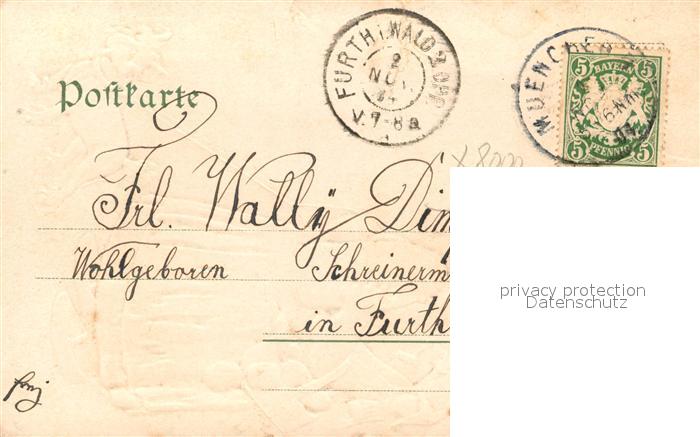 Postkarte
FURTH i. WALD 2
2
NOV.
04
V. 7-8
MUENCHEN
5 BAYERN 5
5 PFENNIG 5
Frl. Wally Dim
Wohlgeboren Schreinerm
in Furth
privacy protection
Datenschutz